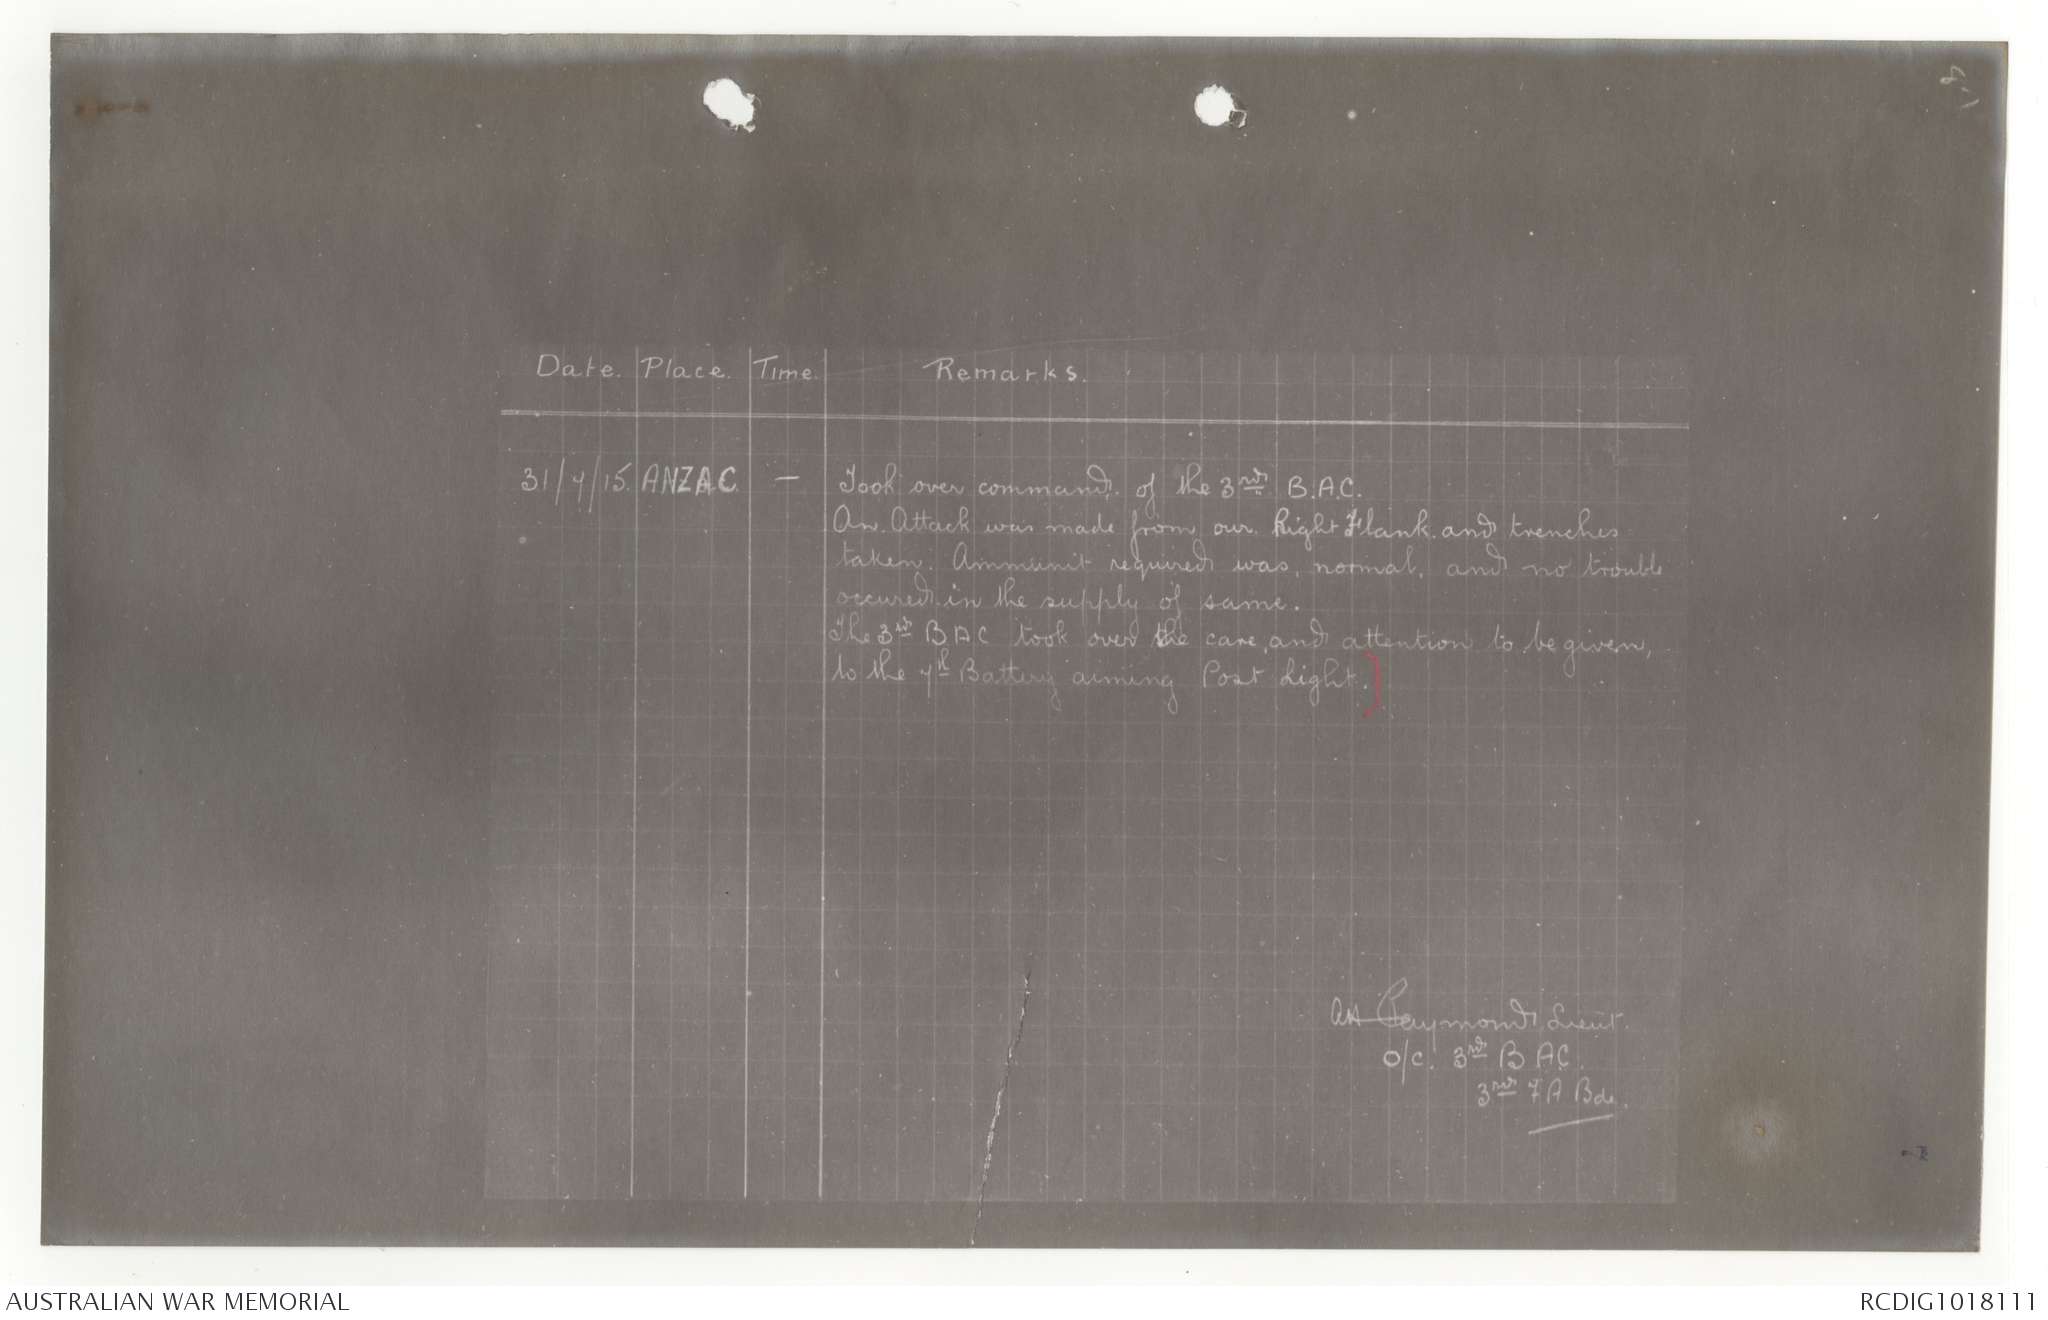 Date. Place. Time. Remarks.
31/7/15. ANZAC. — Took over command of the 3rd B.A.C.
An Attack was made from our Right Flank and trenches
taken. Ammunit required was, normal, and no trouble
occured in the supply of same.
The 3rd B A C took over the care, and attention to be given,
to the 7th Battery aiming Post Light.)
Raymond Lieut.
O/C. 3rd B AC.
3rd F A Bde.
AUSTRALIAN WAR MEMORIAL
RCDIG1018111